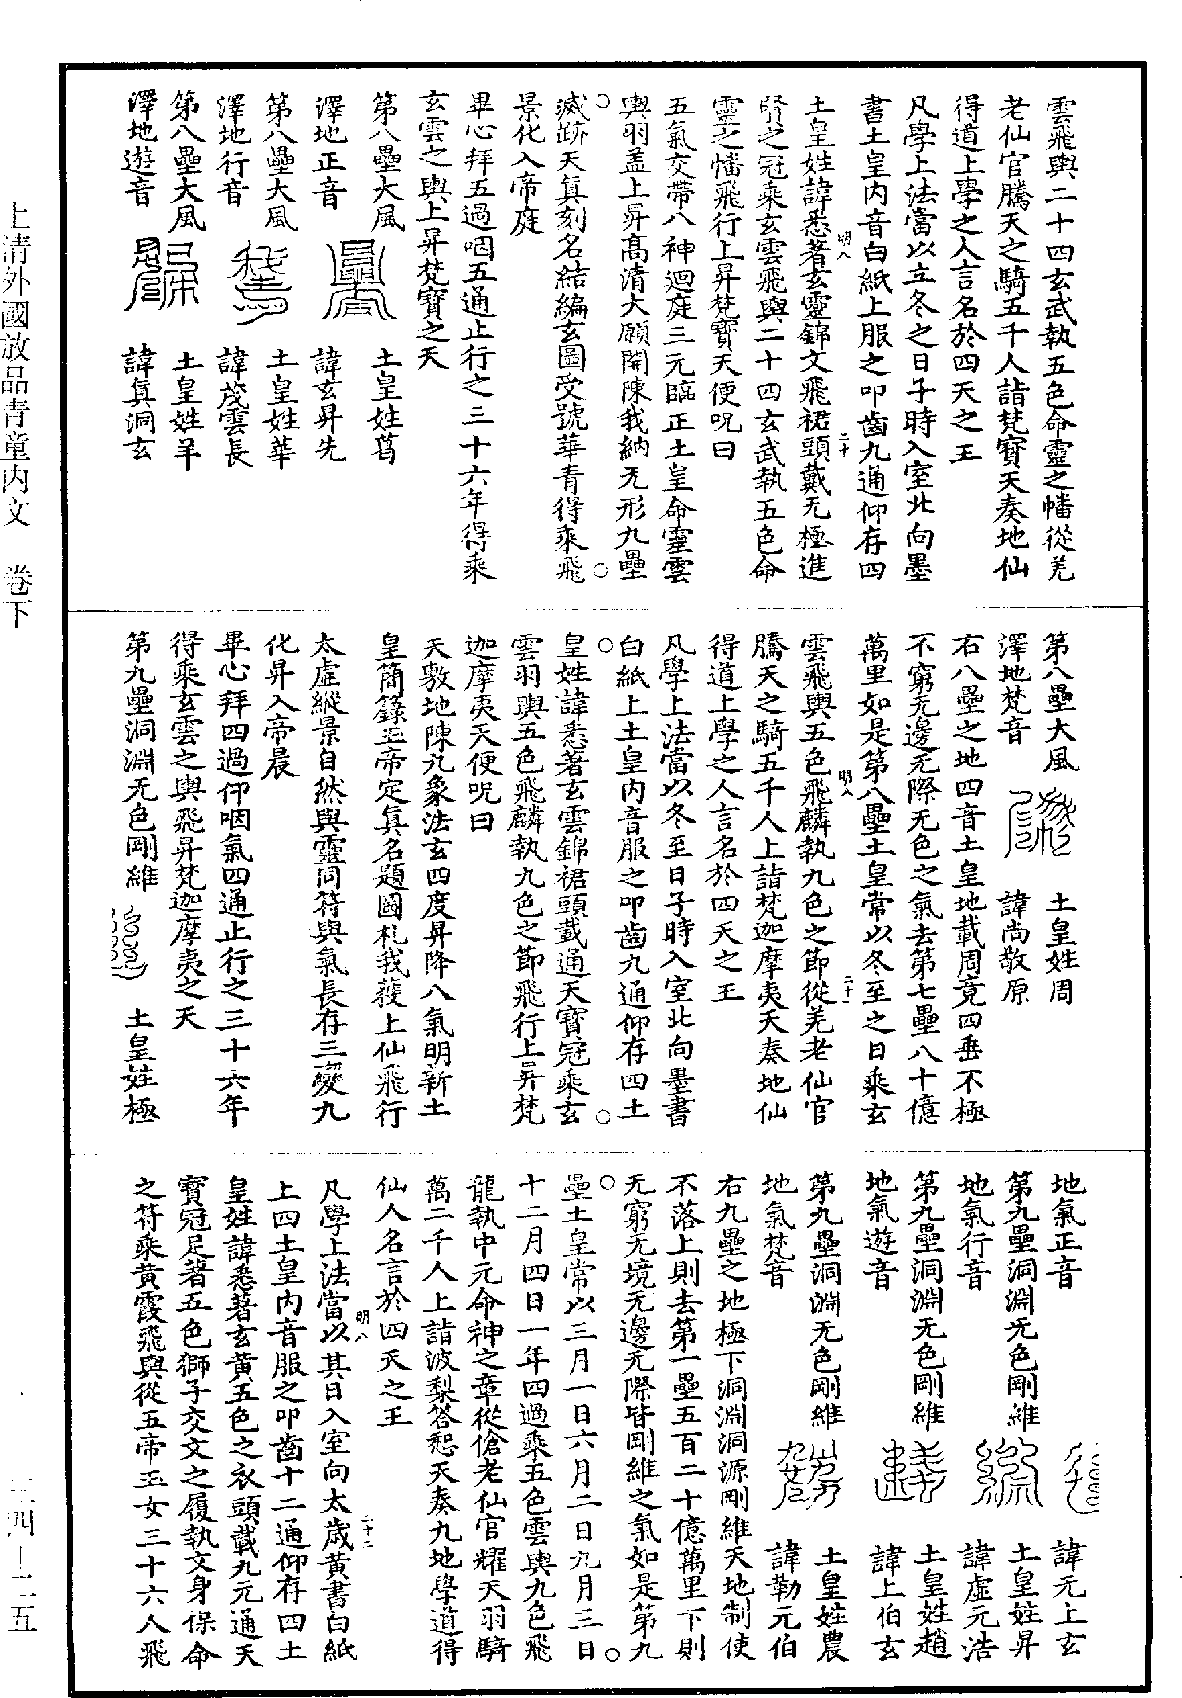 雲飛輿二十四玄武執五色命靈之幡從羌
老仙官騰天之騎五千人詣梵寶天奏地仙
得道上學之人言名於四天之王
凡學上法當以立冬之日子時入室北向墨
書土皇内音白紙上服之叩齒九通仰存四
土皇姓諱悉著玄靈錦文飛裙頭戴无極進
賢之冠乘玄雲飛輿二十四玄武執五色命
靈之幡飛行上昇梵寶天便呪曰
五氣交帶八神迴庭三元臨正土皇命靈雲
輿羽盖上昇高清大願開陳我納无形九壘
滅跡天真刻名結編玄圖受號華青得乘飛
景化入帝庭
畢心拜五過咽五通止行之三十六年得乘
玄雲之輿上昇梵寶之天
第八壘大風　土皇姓葛
澤地正音　諱玄昇先
第八壘大風　土皇姓華
澤地行音　諱茂雲長
第八壘大風　土皇姓羊
澤地遊音　諱真洞玄
第八壘大風　土皇姓周
澤地梵音　諱尚敬原
右八壘之地四音土皇地載周竟四垂不極
不窮无邊无際无色之氣去第七壘八十億
萬里如是第八壘土皇常以冬至之日乘玄
雲飛輿五色飛麟執九色之節從羌老仙官
騰天之騎五千人上詣梵迦摩夷天奏地仙
得道上學之人言名於四天之王
凡學上法當以冬至日子時入室北向墨書
白紙上土皇内音服之叩齒九通仰存四土
皇姓諱悉著玄雲錦裙頭戴通天寶冠乘玄
雲羽輿五色飛麟執九色之節飛行上昇梵
迦摩夷天便呪曰
天敷地陳九象法玄四度昇降八氣明新土
皇簡錄五帝定真名題圖札我獲上仙飛行
太虛縱景自然與靈同符與氣長存三變九
化昇入帝晨
畢心拜四過仰咽氣四通止行之三十六年
得乘玄雲之輿飛昇梵迦摩夷之天
第九壘洞淵无色剛維　土皇姓極
地氣正音　諱元上玄
第九壘洞淵无色剛維　土皇姓昇
地氣行音　諱虛元浩
第九壘洞淵无色剛維　土皇姓趙
地氣遊音　諱上伯玄
第九壘洞淵无色剛維　土皇姓農
地氣梵音　諱勒元伯
右九壘之地極下洞淵洞源剛維天地制使
不落上則去第一壘五百二十億萬里下則
无窮无境无邊无際皆剛維之氣如是第九
壘土皇常以三月一日六月二日九月三日
十二月四日一年四過乘五色雲輿九色飛
龍執中元命神之章從傖老仙官耀天羽騎
萬二千人上詣波梨答惒天奏九地學道得
仙人名言於四天之王
凡學上法當以其日入室向太歲黃書白紙
上四土皇内音服之叩齒十二通仰存四土
皇姓諱悉著玄黃五色之衣頭戴九元通天
寶冠足著五色獅子交文之履執文身保命
之符乘黃霞飛輿從五帝玉女三十六人飛
明八
二十
明八
二十一
明八
二十二
上清外國放品青童内文　卷下
三四—二五